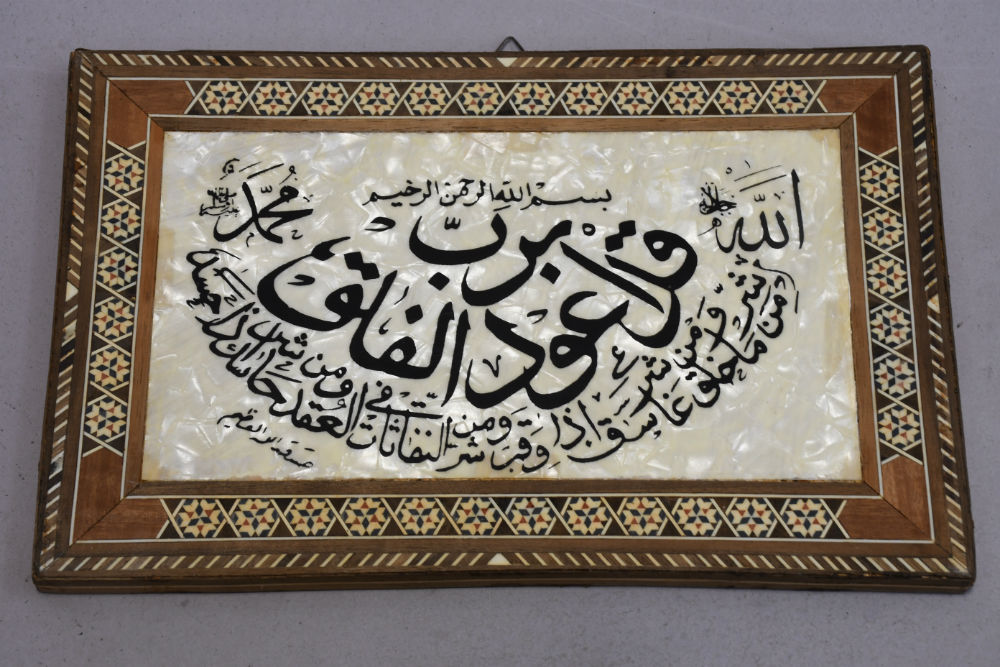 الله
جل جلاله
محمد
بسم الله الرحمن الرحيم
قل اعوذ برب الفلق
من شر ما خلق ومن شر غاسق اذا وقب ومن شر النفاثات في العقد ومن شر حاسد اذا حسد
صدق الله العظيم